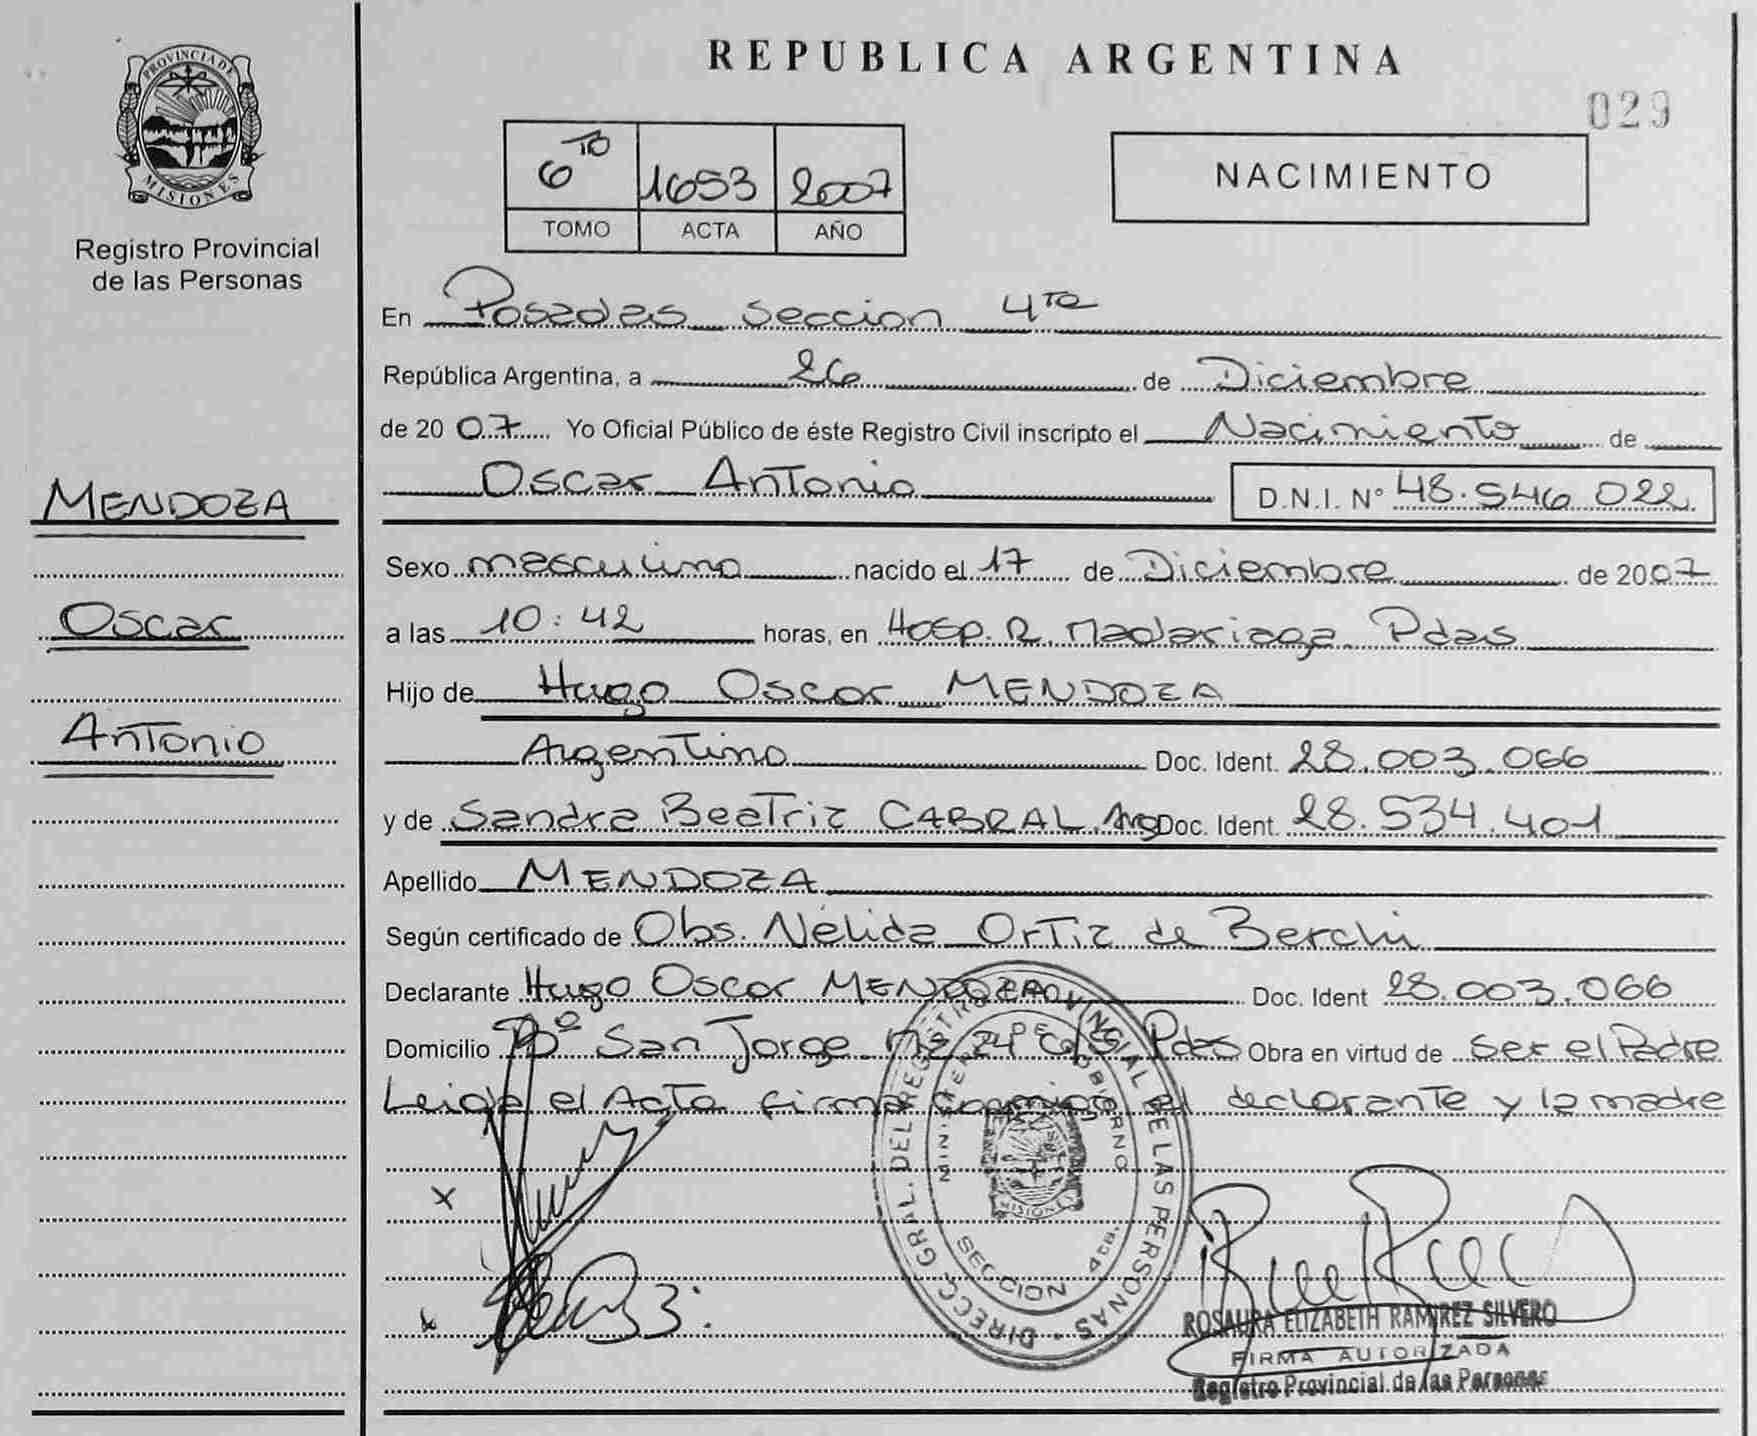 PROVINCIA DE
MISIONES
Registro Provincial
de las Personas
MENDOZA
Oscar
Antonio
REPUBLICA ARGENTINA
029
6TO 1653 2007
TOMO ACTA AÑO
NACIMIENTO
En Posadas seccion 4ta
República Argentina, a 26 de Diciembre
de 2007. Yo Oficial Público de éste Registro Civil inscripto el Nacimiento de
Oscar Antonio D.N.I. N° 48.546.022
Sexo masculino nacido el 17 de Diciembre de 2007
a las 10:42 horas, en Hosp. R. Madariaga Pdas
Hijo de Hugo Oscar MENDOZA
Argentino Doc. Ident. 28.003.066
y de Sandra Beatriz CABRAL. Arg Doc. Ident. 28.534.401
Apellido MENDOZA
Según certificado de Obs. Nélida Ortiz de Berchi
Declarante Hugo Oscar MENDOZA Doc. Ident 28.003.066
Domicilio Bº San Jorge Mz 24 C/5 Pdas Obra en virtud de ser el Padre
Leida el Acta firma conmigo el declarante y la madre
DIRECC. GRAL. DEL REGISTRO PROVINCIAL DE LAS PERSONAS
MINISTERIO DE GOBIERNO
MISIONES
SECCION 4ta.
x
x
ROSAURA ELIZABETH RAMIREZ SILVERO
FIRMA AUTORIZADA
Registro Provincial de las Personas